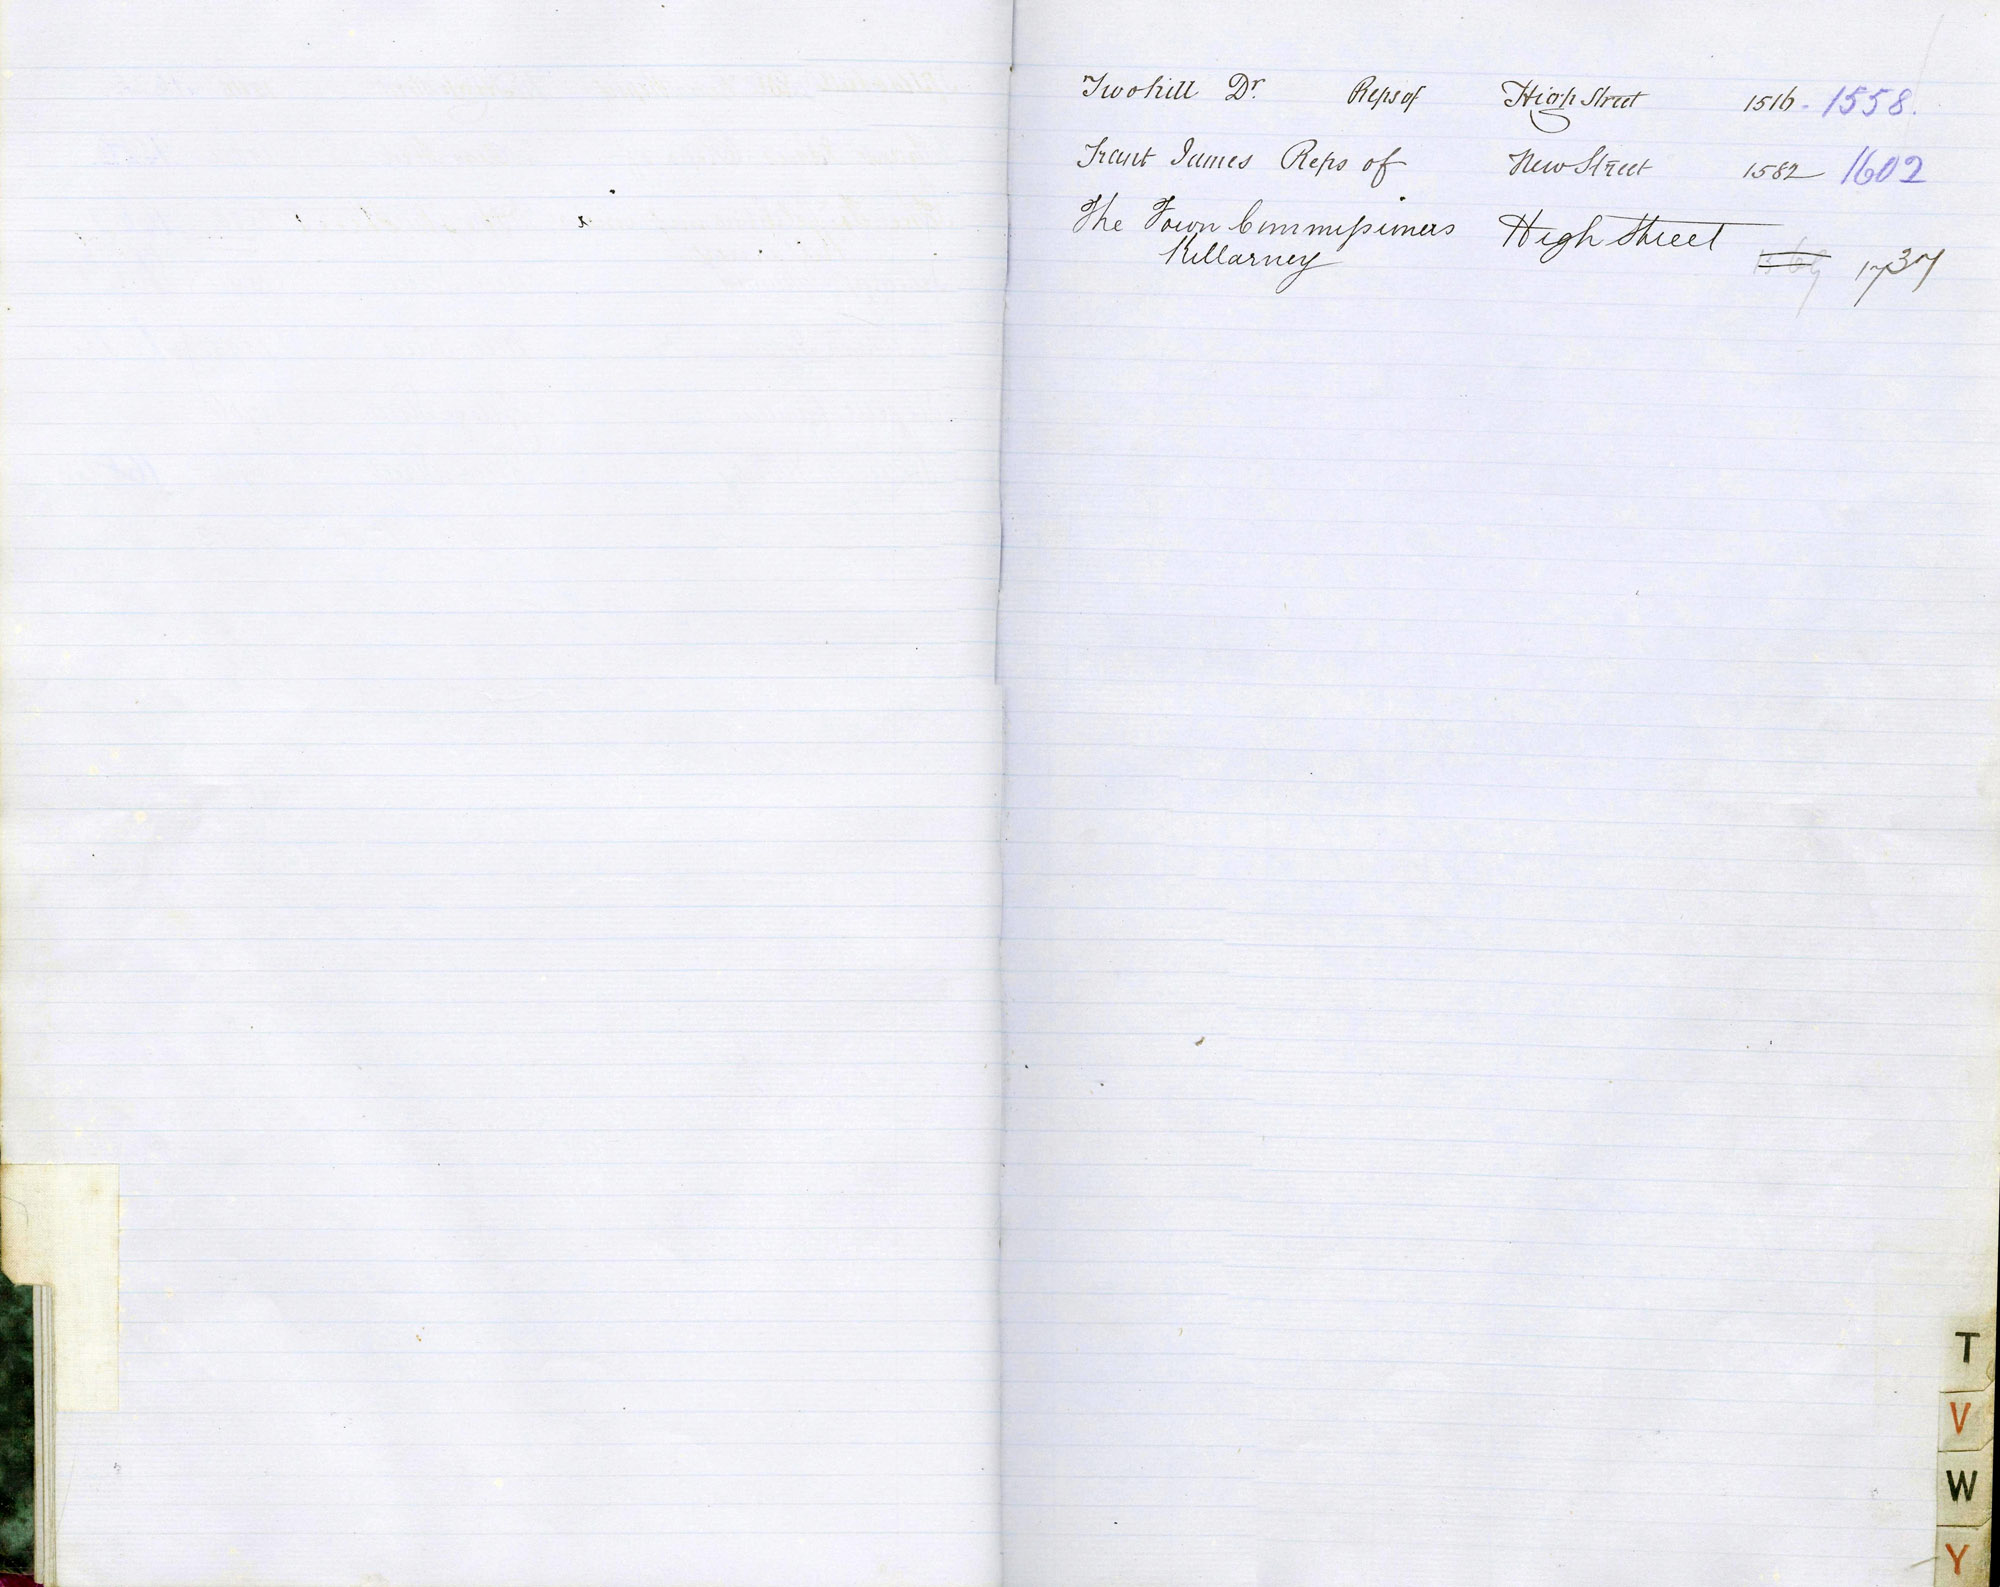 Twohill Dr. Reps of High Street 1516 - 1558.
Trant James Reps of New Street 1582 1602
The Town Commissioners High Street
Killarney 1569 1737
T
V
W
Y